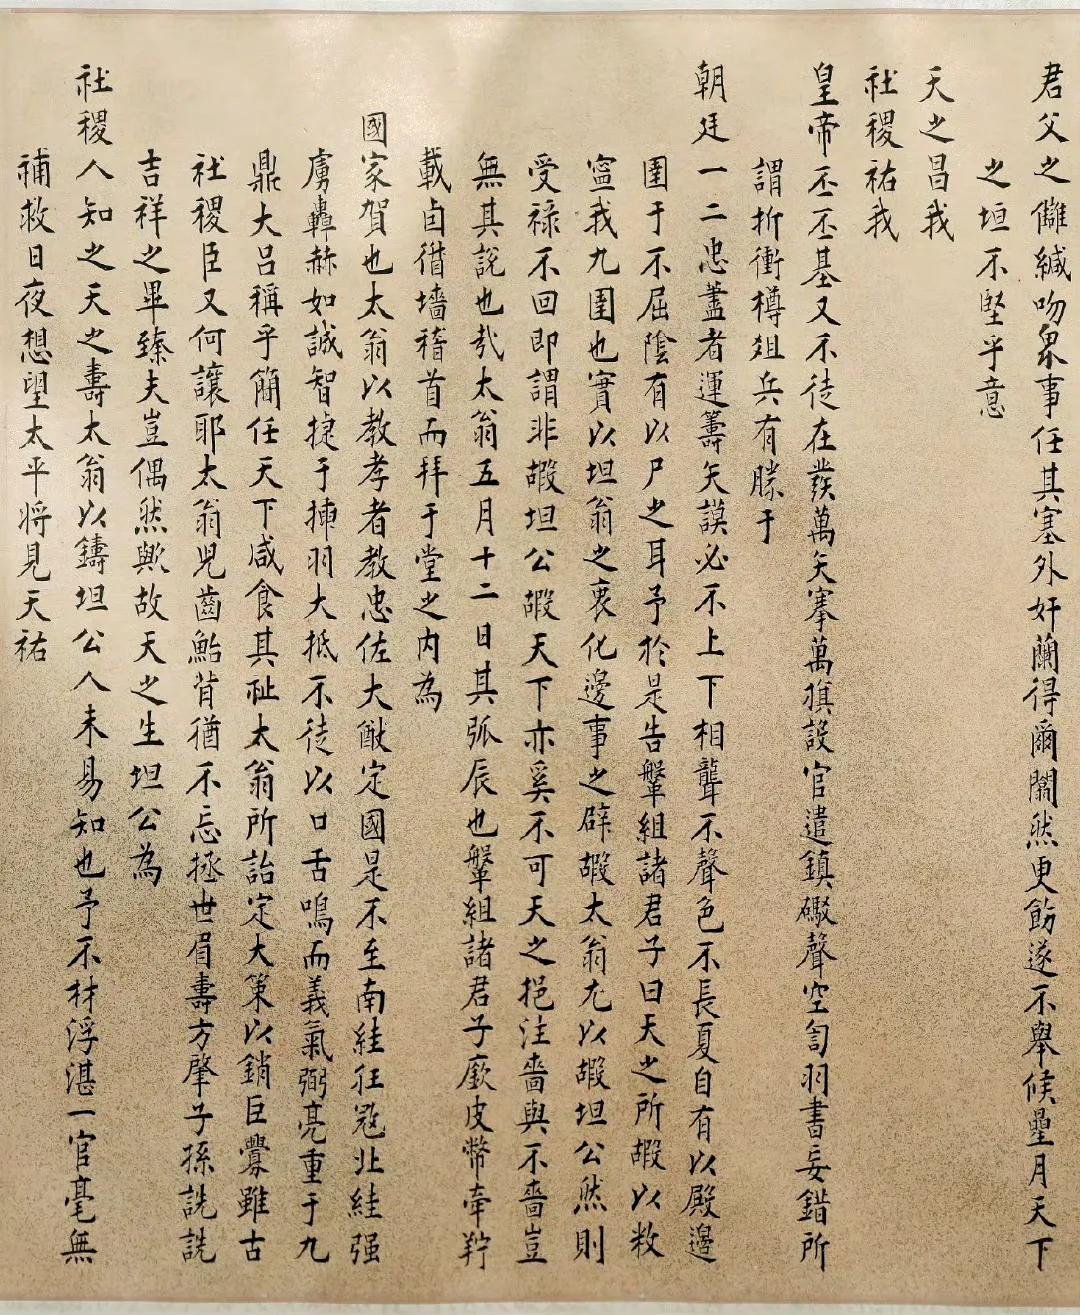 君父之讎緘吻眾事任其塞外奸闌得爾闒然更飭遂不舉候壘月天下
之坦不堅乎意
天之昌我
社稷祐我
皇帝丕丕基又不徒在發萬矢搴萬旗設官遣鎮礮聲空訇羽書妄錯所
謂折衝樽俎兵有勝于
朝廷一二忠藎者運籌矢謨必不上下相聾不聲色不長夏自有以殿邊
圉于不屈陰有以尸之耳予於是告鞶組諸君子曰天之所嘏以敉
寍我九圉也實以坦翁之衷化邊事之辟嘏太翁尤以嘏坦公然則
受祿不回即謂非嘏坦公嘏天下亦奚不可天之挹注嗇與不嗇豈
無其說也哉太翁五月十二日其弧辰也鞶組諸君子廞皮幣牽羜
載卣借墻稽首而拜于堂之內為
國家賀也太翁以教孝者教忠佐大猷定國是不至南絓狂寇北絓强
虜轟赫如誠智捷于揀羽大抵不徒以口舌鳴而義氣弼亮重于九
鼎大呂稱乎簡任天下咸食其祉太翁所詒定大策以銷巨釁雖古
社稷臣又何讓耶太翁兒齒鮐背猶不忘拯世眉壽方肇子孫詵詵
吉祥之畢臻夫豈偶然歟故天之生坦公為
社稷人知之天之壽太翁以鑄坦公人未易知也予不材浮湛一官毫無
補救日夜想望太平將見天祐